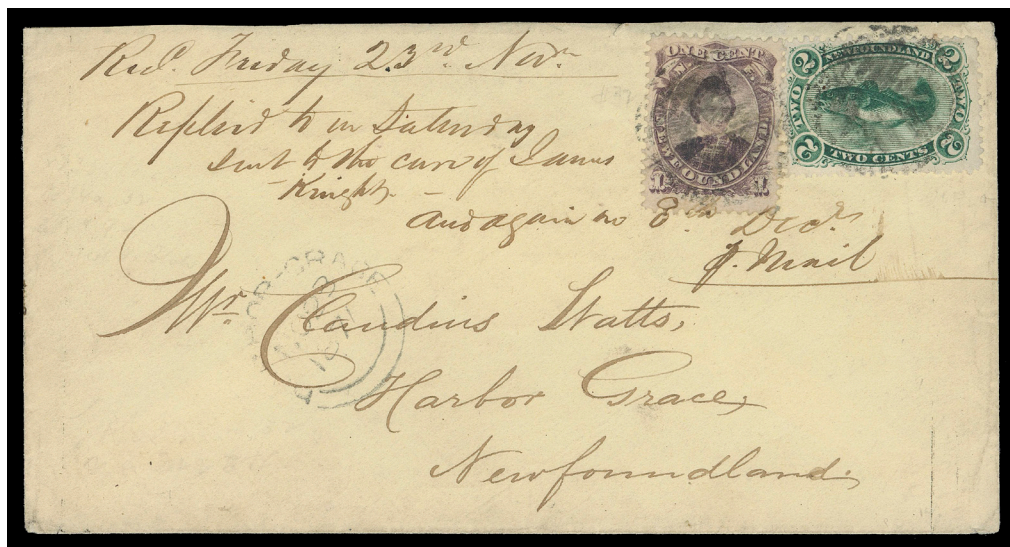 Recd. Friday 23rd Novr
Replied to on Saturday
sent to the care of James
Knight.
And again on 8th Decr
p. Mail
ONE CENT
NEWFOUNDLAND
2 NEWFOUNDLAND 2
TWO
TWO
2 TWO CENTS 2
Mr. Claudius Watts,
Harbor Grace,
Newfoundland.